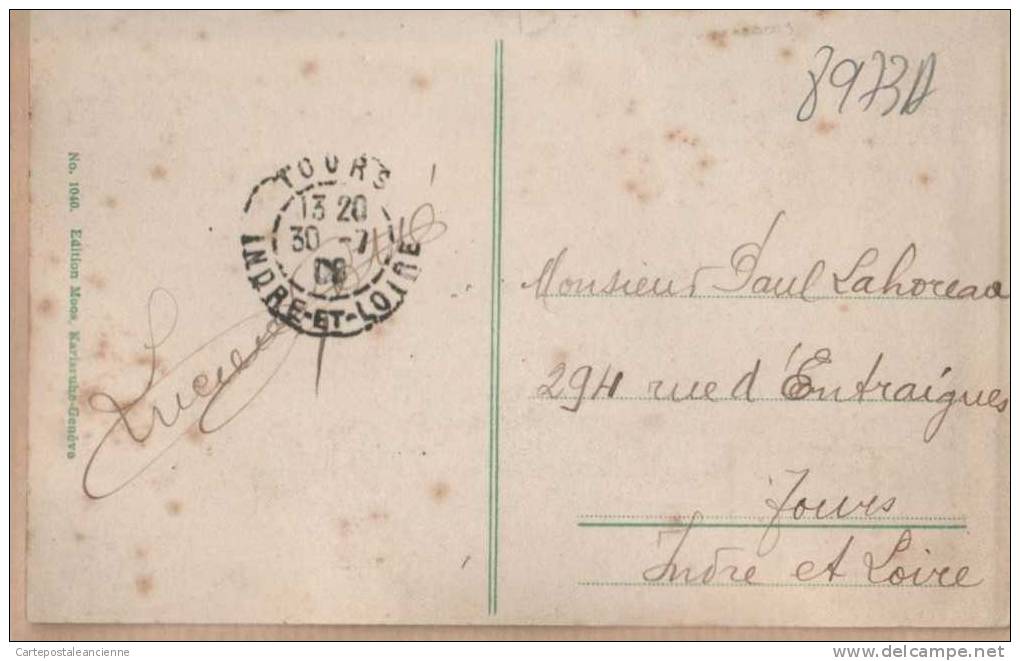 8973A
No. 1040. Edition Moos, Karlsruhe-Genève
TOURS
13 20
30 -7
08
INDRE-ET-LOIRE
Lucien
Monsieur Paul Lahoreau
294 rue d'Entraigues
Tours
Indre et Loire
Cartepostaleancienne
www.delcampe.net